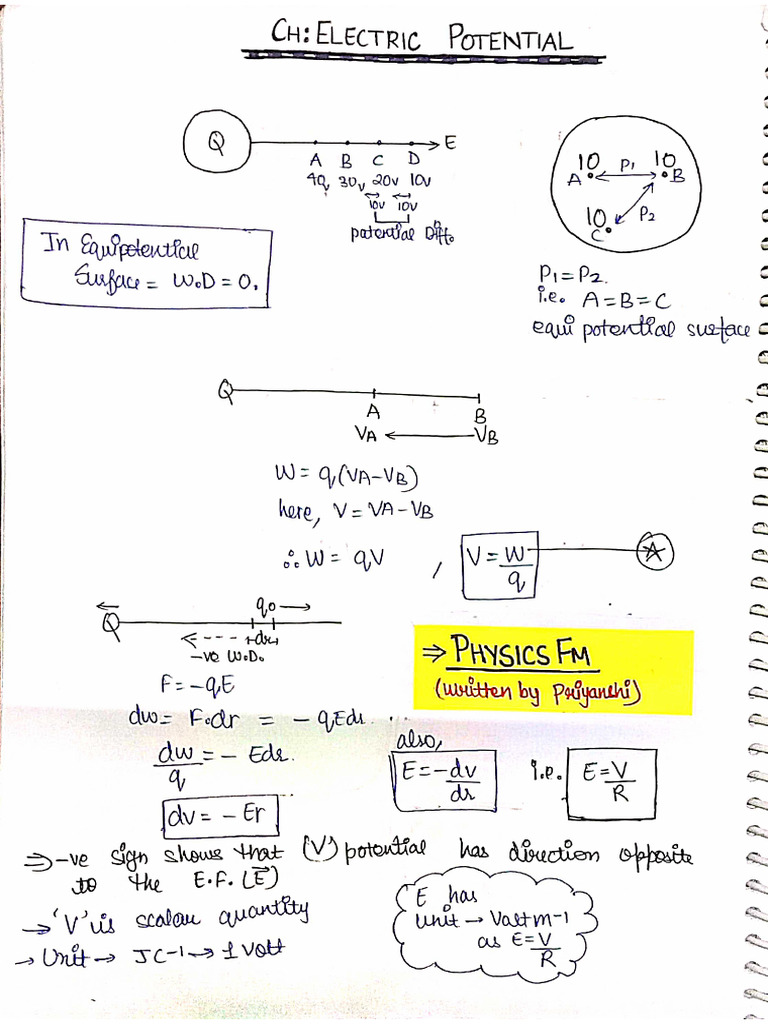 CH: ELECTRIC POTENTIAL
Q E
A B C D
40v 30v 20v 10v
10v 10v
potential Diff.
In Equipotential
Surface = W.D = 0.
10 P1 10
A B
10 P2
C
P1 = P2.
i.e. A = B = C
equi potential surface
Q
A B
VA VB
W = q(VA-VB)
here, V = VA-VB
∴ W = qV , V = W/q A
q0
Q
dr
-ve W.D.
⇒ PHYSICS FM
(written by Priyanshi)
F = -qE
dw = F.dr = - qEdr ...
dw/q = - Edr.
also,
E = -dv/dr i.e. E = V/R
dv = - Er
⇒ -ve sign shows that (V) potential has direction opposite
to the E.F. (E⃗)
→ 'V' is scalar quantity
→ Unit → JC-1 → 1 Volt
E has
unit → Volt m-1
as E = V/R